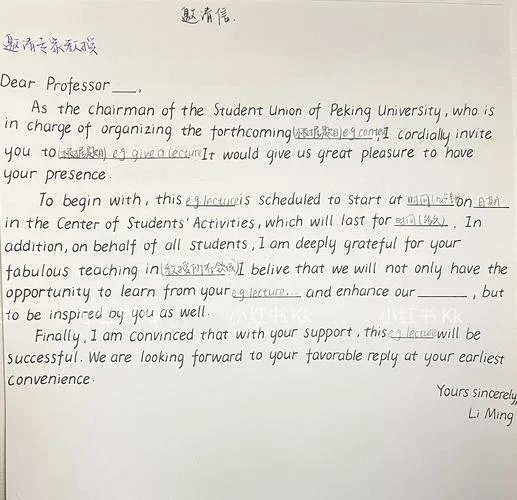 邀请信.
邀请专家教授
Dear Professor ___,
As the chairman of the Student Union of Peking University, who is
in charge of organizing the forthcoming (根据题目) eg contest, I cordially invite
you to (根据题目) eg give a lecture It would give us great pleasure to have
your presence.
To begin with, this eg lecture is scheduled to start at 时间 on 日期
in the Center of Students' Activities, which will last for 时间(多久). In
addition, on behalf of all students, I am deeply grateful for your
fabulous teaching in (教授所在领域) I belive that we will not only have the
opportunity to learn from your eg lecture... and enhance our ______, but
to be inspired by you as well.
小红书 Kk 小红书 Kk
Finally, I am convinced that with your support, this eg lecture will be
successful. We are looking forward to your favorable reply at your earliest
convenience.
Yours sincerely,
Li Ming